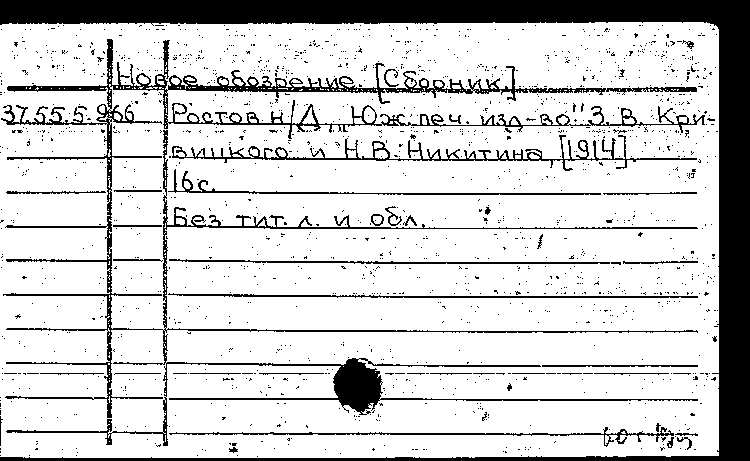 Новое обозрение. [Сборник.]
37.55.5.966 Ростов н/Д, „Юж. печ. изд-во" З. В. Кри-
вицкого и Н. В. Никитина, [1914].
16 с.
Без тит. л. и обл.